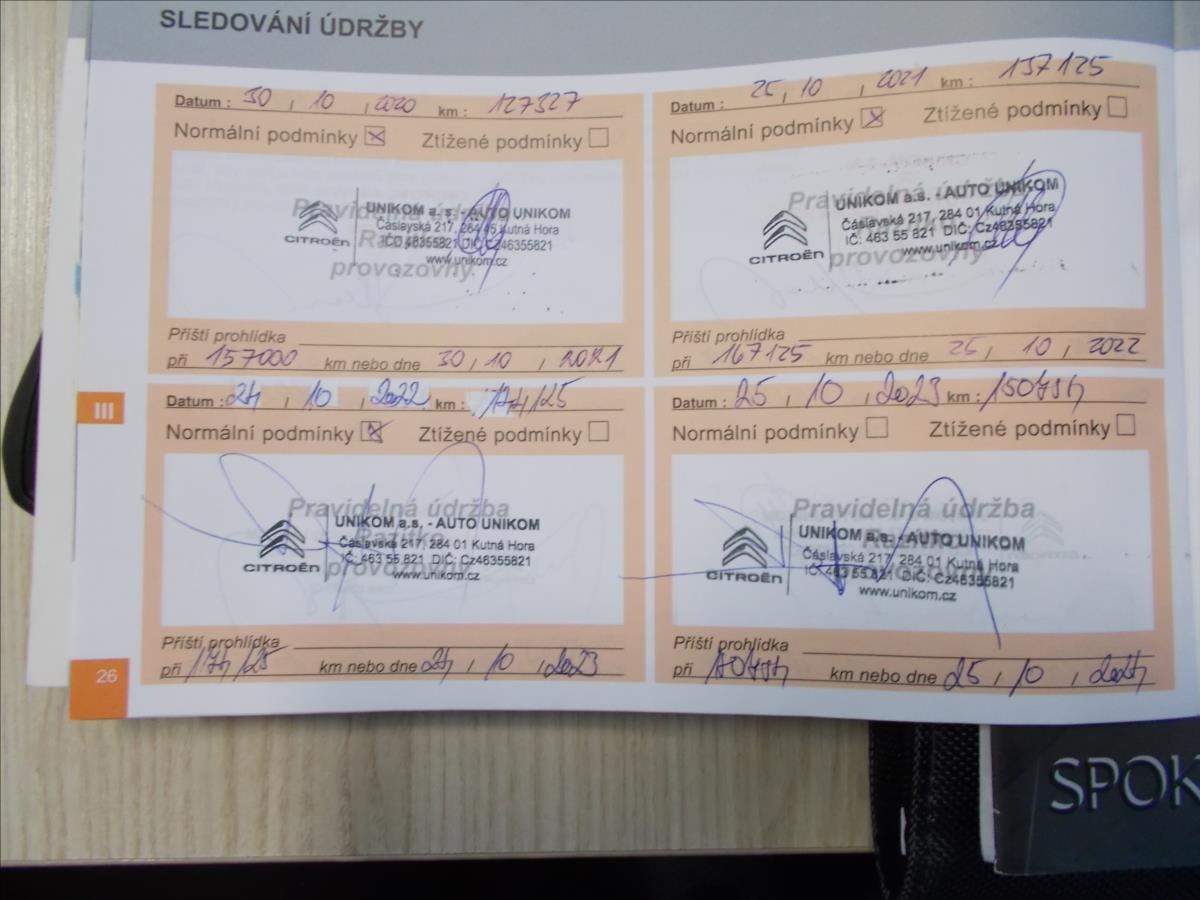 SLEDOVÁNÍ ÚDRŽBY
Datum : 30 , 10 , 2020 km : 127327
Normální podmínky Ztížené podmínky
Pravidelná údržba
Razítko
provozovny
UNIKOM a.s. - AUTO UNIKOM
Čáslavská 217, 284 45 Kutná Hora
IČO 46355821 DIČ: CZ46355821
www.unikom.cz
CITROËN
Příští prohlídka
při 157000 km nebo dne 30 , 10 , 2021
Datum : 25 , 10 , 2021 km : 137125
Normální podmínky Ztížené podmínky
Pravidelná údržba
provozovny
UNIKOM a.s. - AUTO UNIKOM
Čáslavská 217, 284 01 Kutná Hora
IČ: 463 55 821 DIČ: Cz46355821
www.unikom.cz
CITROËN
Příští prohlídka
při 167125 km nebo dne 25 , 10 , 2022
III
Datum : 24 , 10 , 2022 km :
Normální podmínky Ztížené podmínky
Pravidelná údržba
Razítko
provozovny
UNIKOM a.s. - AUTO UNIKOM
Čáslavská 217, 284 01 Kutná Hora
IČ: 463 55 821 DIČ: Cz46355821
www.unikom.cz
CITROËN
Příští prohlídka
při km nebo dne 24 , 10 , 2023
Datum : 25 , 10 , 2023 km :
Normální podmínky Ztížené podmínky
Pravidelná údržba
Razítko
provozovny
UNIKOM a.s. - AUTO UNIKOM
Čáslavská 217, 284 01 Kutná Hora
IČ: 463 55 821 DIČ: Cz46355821
www.unikom.cz
CITROËN
Příští prohlídka
při km nebo dne 25 , 10 , 2024
26
SPOK